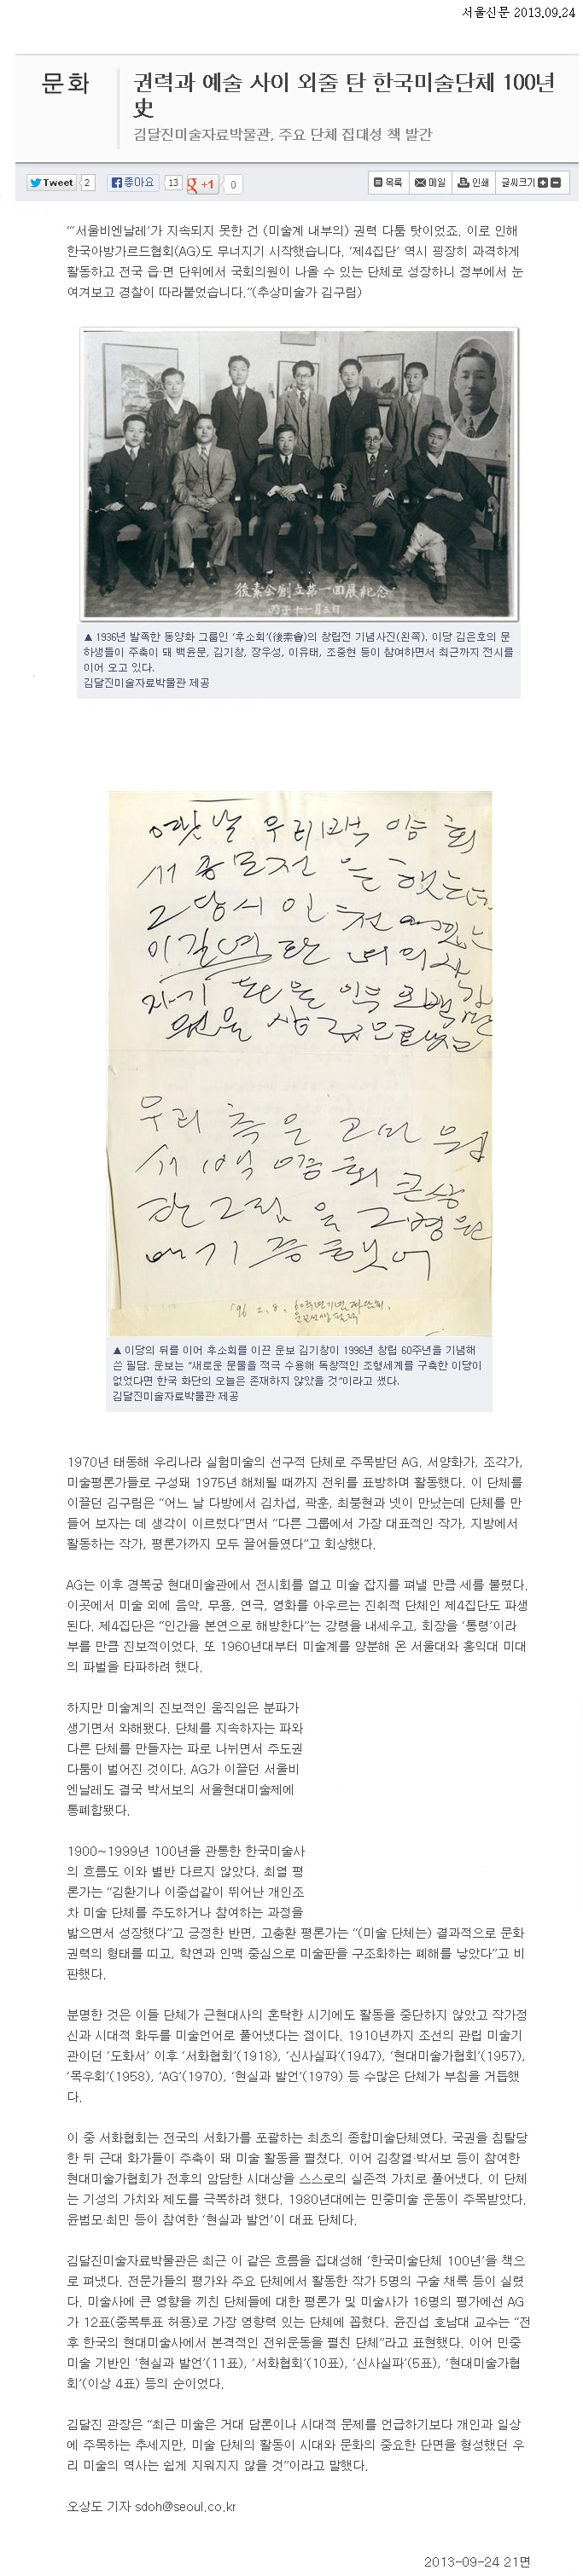 서울신문 2013.09.24
문화
권력과 예술 사이 외줄 탄 한국미술단체 100년
史
김달진미술자료박물관, 주요 단체 집대성 책 발간
Tweet 2 좋아요 13 +1 0 목록 메일 인쇄 글씨크기
“‘서울비엔날레’가 지속되지 못한 건 (미술계 내부의) 권력 다툼 탓이었죠. 이로 인해
한국아방가르드협회(AG)도 무너지기 시작했습니다. ‘제4집단’ 역시 굉장히 과격하게
활동하고 전국 읍·면 단위에서 국회의원이 나올 수 있는 단체로 성장하니 정부에서 눈
여겨보고 경찰이 따라붙었습니다.”(추상미술가 김구림)
後素会創立第一回展紀念
丙子十一月三日
▲ 1936년 발족한 동양화 그룹인 ‘후소회’(後素會)의 창립전 기념사진(왼쪽). 이당 김은호의 문
하생들이 주축이 돼 백윤문, 김기창, 장우성, 이유태, 조중현 등이 참여하면서 최근까지 전시를
이어 오고 있다.
김달진미술자료박물관 제공
옛날 우리
전 을 했는데
그 당시 인천
자기
우리 측은
큰
그림 을
▲ 이당의 뒤를 이어 후소회를 이끈 운보 김기창이 1996년 창립 60주년을 기념해
쓴 필담. 운보는 “새로운 문물을 적극 수용해 독창적인 조형세계를 구축한 이당이
없었다면 한국 화단의 오늘은 존재하지 않았을 것”이라고 썼다.
김달진미술자료박물관 제공
1970년 태동해 우리나라 실험미술의 선구적 단체로 주목받던 AG. 서양화가, 조각가,
미술평론가들로 구성돼 1975년 해체될 때까지 전위를 표방하며 활동했다. 이 단체를
이끌던 김구림은 “어느 날 다방에서 김차섭, 곽훈, 최붕현과 넷이 만났는데 단체를 만
들어 보자는 데 생각이 이르렀다”면서 “다른 그룹에서 가장 대표적인 작가, 지방에서
활동하는 작가, 평론가까지 모두 끌어들였다”고 회상했다.
AG는 이후 경복궁 현대미술관에서 전시회를 열고 미술 잡지를 펴낼 만큼 세를 불렸다.
이곳에서 미술 외에 음악, 무용, 연극, 영화를 아우르는 진취적 단체인 제4집단도 파생
된다. 제4집단은 “인간을 본연으로 해방한다”는 강령을 내세우고, 회장을 ‘통령’이라
부를 만큼 진보적이었다. 또 1960년대부터 미술계를 양분해 온 서울대와 홍익대 미대
의 파벌을 타파하려 했다.
하지만 미술계의 진보적인 움직임은 분파가
생기면서 와해됐다. 단체를 지속하자는 파와
다른 단체를 만들자는 파로 나뉘면서 주도권
다툼이 벌어진 것이다. AG가 이끌던 서울비
엔날레도 결국 박서보의 서울현대미술제에
통폐합됐다.
1900~1999년 100년을 관통한 한국미술사
의 흐름도 이와 별반 다르지 않았다. 최열 평
론가는 “김환기나 이중섭같이 뛰어난 개인조
차 미술 단체를 주도하거나 참여하는 과정을
밟으면서 성장했다”고 긍정한 반면, 고충환 평론가는 “(미술 단체는) 결과적으로 문화
권력의 형태를 띠고, 학연과 인맥 중심으로 미술판을 구조화하는 폐해를 낳았다”고 비
판했다.
분명한 것은 이들 단체가 근현대사의 혼탁한 시기에도 활동을 중단하지 않았고 작가정
신과 시대적 화두를 미술언어로 풀어냈다는 점이다. 1910년까지 조선의 관립 미술기
관이던 ‘도화서’ 이후 ‘서화협회’(1918), ‘신사실파’(1947), ‘현대미술가협회’(1957),
‘목우회’(1958), ‘AG’(1970), ‘현실과 발언’(1979) 등 수많은 단체가 부침을 거듭했
다.
이 중 서화협회는 전국의 서화가를 포괄하는 최초의 종합미술단체였다. 국권을 침탈당
한 뒤 근대 화가들이 주축이 돼 미술 활동을 펼쳤다. 이어 김창열·박서보 등이 참여한
현대미술가협회가 전후의 암담한 시대상을 스스로의 실존적 가치로 풀어냈다. 이 단체
는 기성의 가치와 제도를 극복하려 했다. 1980년대에는 민중미술 운동이 주목받았다.
윤범모·최민 등이 참여한 ‘현실과 발언’이 대표 단체다.
김달진미술자료박물관은 최근 이 같은 흐름을 집대성해 ‘한국미술단체 100년’을 책으
로 펴냈다. 전문가들의 평가와 주요 단체에서 활동한 작가 5명의 구술 채록 등이 실렸
다. 미술사에 큰 영향을 끼친 단체들에 대한 평론가 및 미술사가 16명의 평가에선 AG
가 12표(중복투표 허용)로 가장 영향력 있는 단체에 꼽혔다. 윤진섭 호남대 교수는 “전
후 한국의 현대미술사에서 본격적인 전위운동을 펼친 단체”라고 표현했다. 이어 민중
미술 기반인 ‘현실과 발언’(11표), ‘서화협회’(10표), ‘신사실파’(5표), ‘현대미술가협
회’(이상 4표) 등의 순이었다.
김달진 관장은 “최근 미술은 거대 담론이나 시대적 문제를 언급하기보다 개인과 일상
에 주목하는 추세지만, 미술 단체의 활동이 시대와 문화의 중요한 단면을 형성했던 우
리 미술의 역사는 쉽게 지워지지 않을 것”이라고 말했다.
오상도 기자 sdoh@seoul.co.kr
2013-09-24 21면